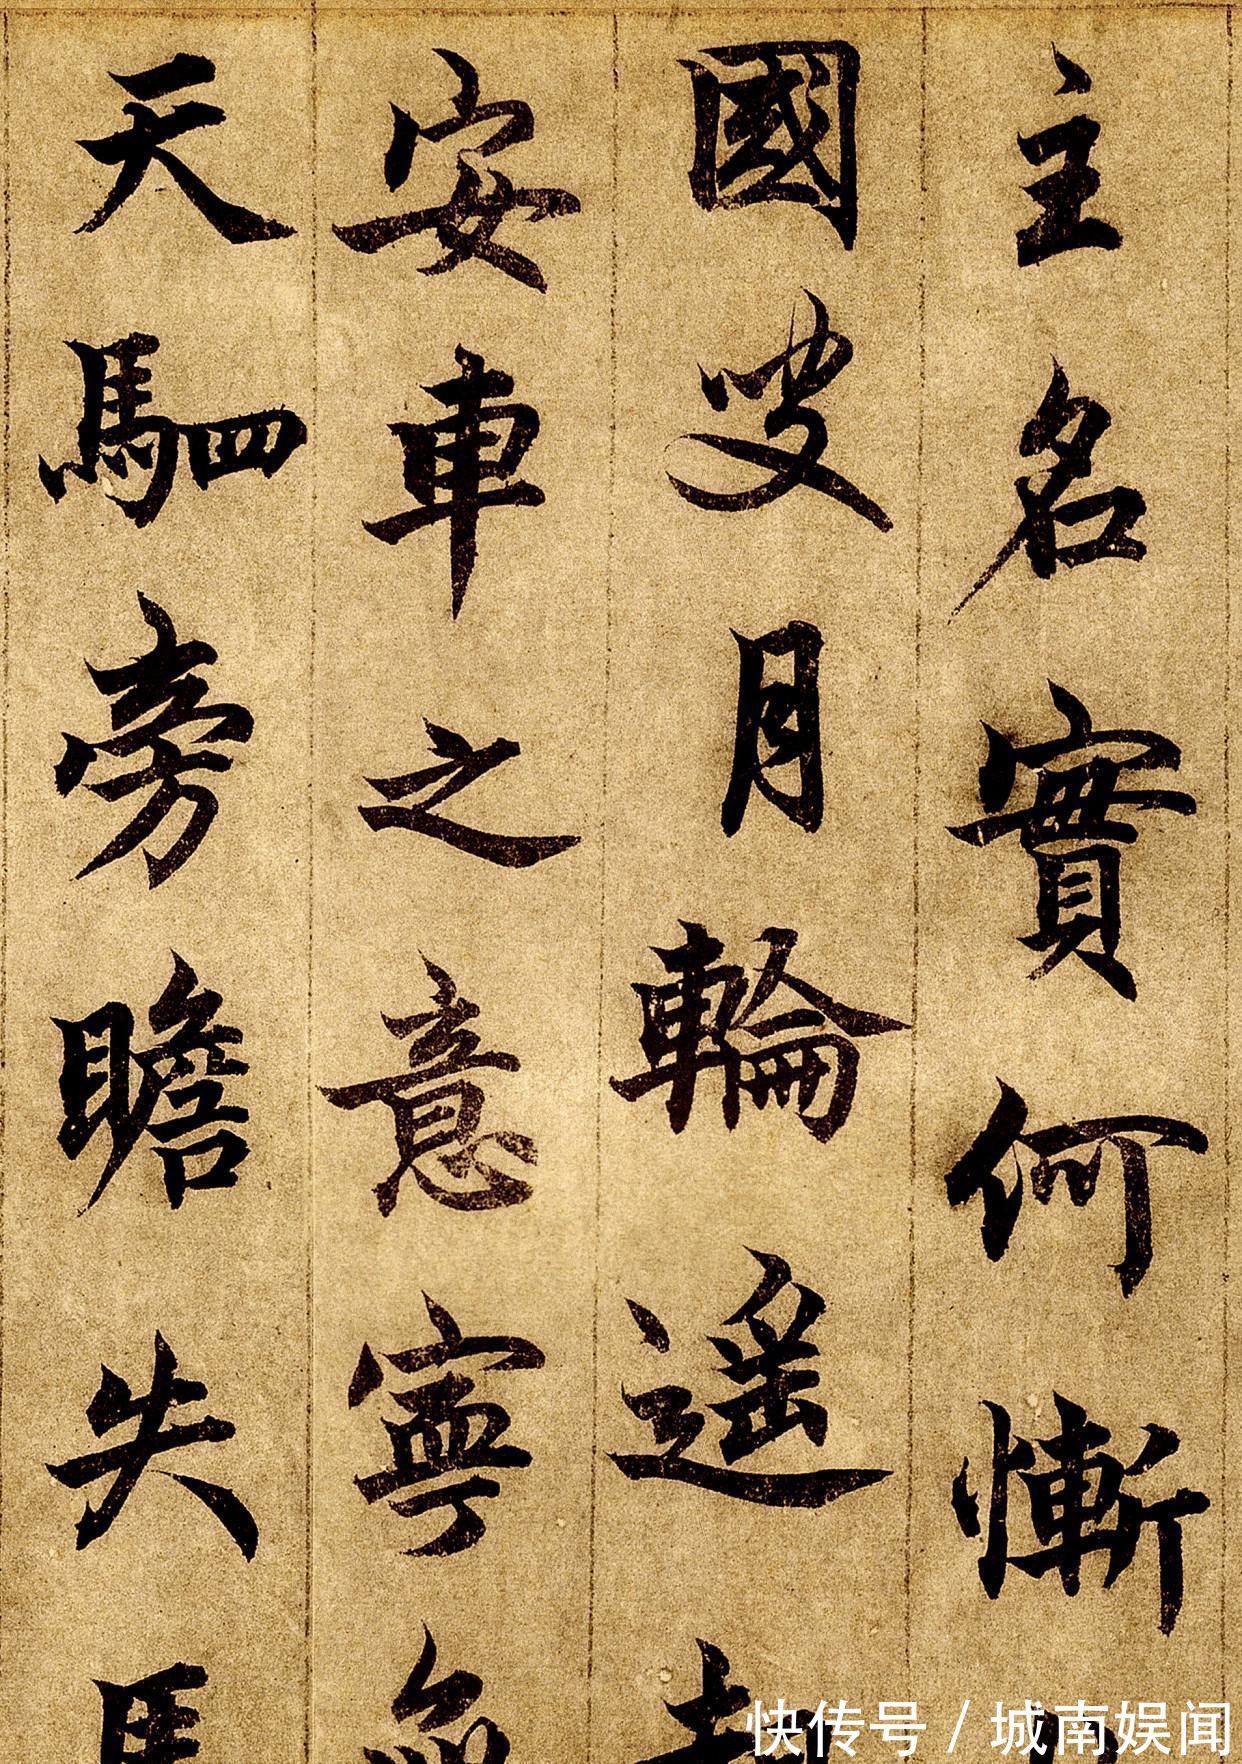 主名實何慚
國叟月輪遥
安車之意寧
天駟旁瞻失馬
快传号 / 城南娱闻